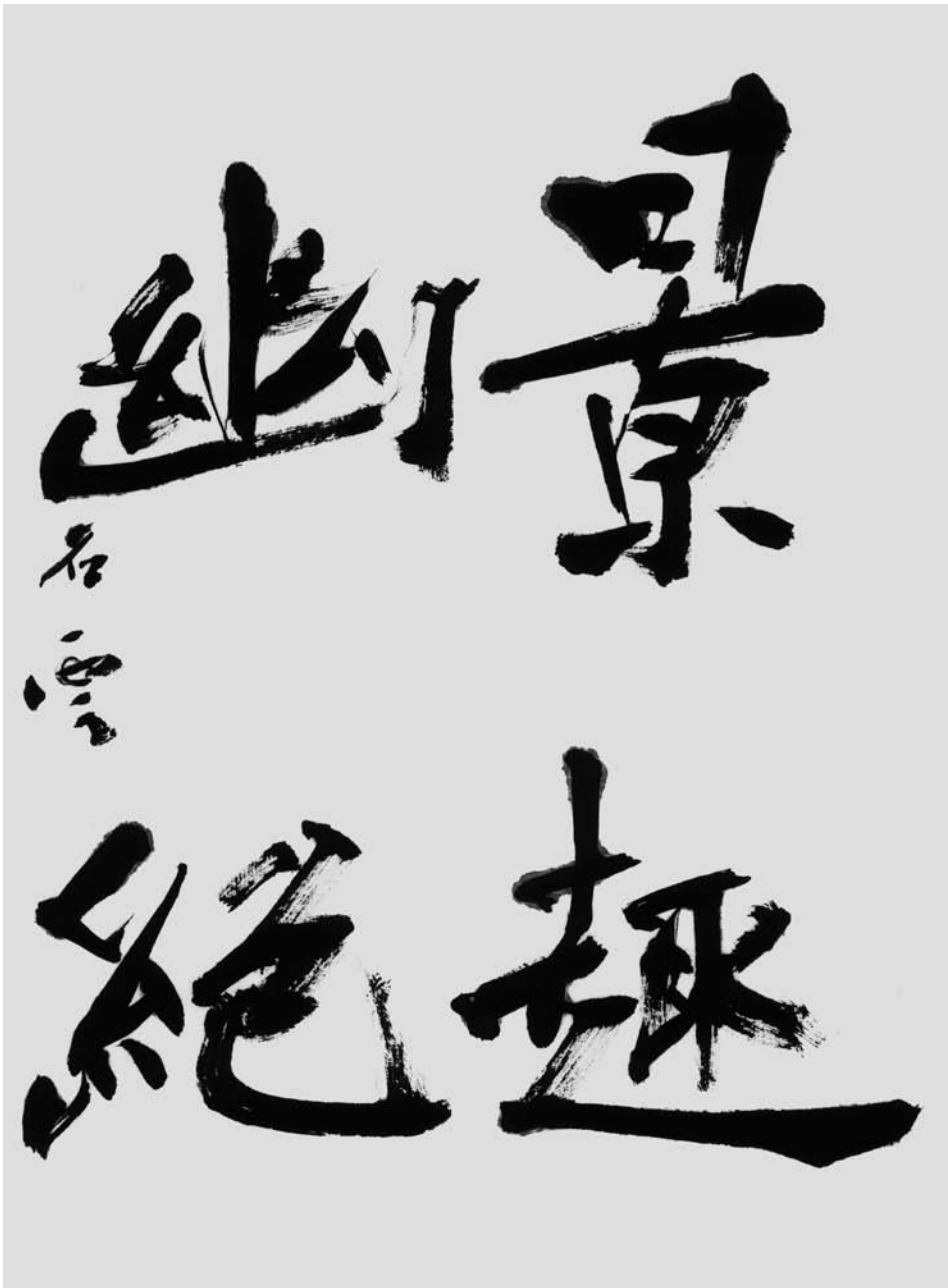 景趣
幽絶
石雲